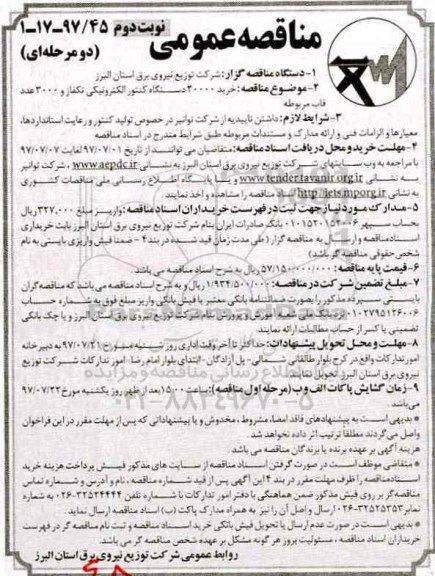 مناقصه عمومی
نوبت دوم ۹۷/۴۵-۱۷-۱
(دو مرحله‌ای)
۱-دستگاه مناقصه گزار: شرکت توزیع نیروی برق استان البرز
۲-موضوع مناقصه: خرید ۳۰۰۰۰ دستگاه کنتور الکترونیکی تکفاز و ۳۰۰۰ عدد
قاب مربوطه
۳-شرایط لازم: داشتن تاییدیه از شرکت توانیر در خصوص تولید کنتور و رعایت استانداردها،
معیارها و الزامات فنی و ارائه مدارک و مستندات مربوطه طبق شرایط مندرج در اسناد مناقصه
۴-مهلت خرید و محل دریافت اسناد مناقصه: متقاضیان می توانند از تاریخ ۹۷/۰۷/۰۱ لغایت ۹۷/۰۷/۰۷
با مراجعه به وب سایتهای شرکت توزیع نیروی برق استان البرز به نشانی www.aepdc.ir ، شرکت توانیر
به نشانی www.tender.tavanir.org.ir و یا پایگاه اطلاع رسانی ملی مناقصات کشوری
به نشانی http://iets.mporg.ir اسناد مناقصه را مشاهده و اخذ نمایند
۵-مدارک مورد نیاز جهت ثبت در فهرست خریداران اسناد مناقصه: واریز مبلغ ۳۲۷,۰۰۰ ریال
بحساب سپهر ۰۱۰۱۵۲۰۱۵۲۰۰۶ بانک صادرات ایران بنام شرکت توزیع نیروی برق استان البرز بابت خریداری
اسناد مناقصه و ارسال آن به مناقصه گزار (طی مدت زمان قید شده در بند ۴ - ضمنا فیش واریزی بایستی به نام
شخص حقوقی مناقصه گر باشد)
۶-قیمت پایه مناقصه: ۵۷/۱۵۰/۰۰۰/۰۰۰ ریال به شرح اسناد مناقصه می باشد.
۷-مبلغ تضمین شرکت در مناقصه: ۱/۹۳۴/۵۰۰/۰۰۰ ریال و به شرح اسناد مناقصه می باشد که مناقصه گران
بایستی سپرده مذکور را بصورت ضمانتنامه بانکی معتبر یا فیش بانکی واریز مبلغ فوق به شماره حساب
۰۱۰۲۷۹۵۱۲۶۰۰۶ نزد بانک ملی شعبه آموزش و پرورش بنام شرکت توزیع نیروی برق استان البرز و یا چک بانکی
تضمینی یا کسر از حساب مطالبات ارائه نمایند
۸-مهلت و محل تحویل پیشنهادات: حداکثر تا آخر وقت اداری روز شنبه مورخ ۹۷/۰۷/۲۱ به دبیرخانه
امور تدارکات واقع در کرج بلوار طالقانی شمالی - پل آزادگان - ابتدای بلوار امام رضا - امور تدارکات شرکت توزیع
نیروی برق استان البرز تحویل نمایند
۹-زمان گشایش پاکات الف و ب (مرحله اول مناقصه): ساعت ۱۵:۰۰ بعد از ظهر روز یکشنبه مورخ ۹۷/۰۷/۲۲
می باشد
* بدیهی است به پیشنهادهای فاقد امضاء، مشروط، مخدوش و یا پیشنهاداتی که پس از مهلت مقرر در این فراخوان
واصل می گردند مطلقا ترتیب اثر داده نخواهد شد.
هزینه آگهی بر عهده برنده یا برندگان مناقصه می باشد.
* متقاضی موظف است در صورت گرفتن اسناد مناقصه از سایت های مذکور فیش پرداخت هزینه خرید
اسناد مناقصه را ظرف مهلت مقرر در بند ۴ این آگهی پس از قید شماره مناقصه ، نام و آدرس و شماره تماس
مناقصه گر بر روی فیش مذکور ضمن هماهنگی با دفتر امور تدارکات با شماره تلفن ۳۲۵۲۴۴۴۴-۰۲۶ به شماره
نمابر ۳۲۵۲۵۳۵۳-۰۲۶ ارسال و اصل آن را نیز به همراه مدارک پاکت (ب) اسناد مناقصه ارسال نماید.
* بدیهی است در صورت عدم ارسال یا تحویل فیش بانکی خرید اسناد مناقصه و ثبت نام مناقصه گر در فهرست
خریداران اسناد مناقصه ، مسئولیت بروز هر گونه مشکل بر عهده شخص مناقصه گر می باشد.
روابط عمومی شرکت توزیع نیروی برق استان البرز